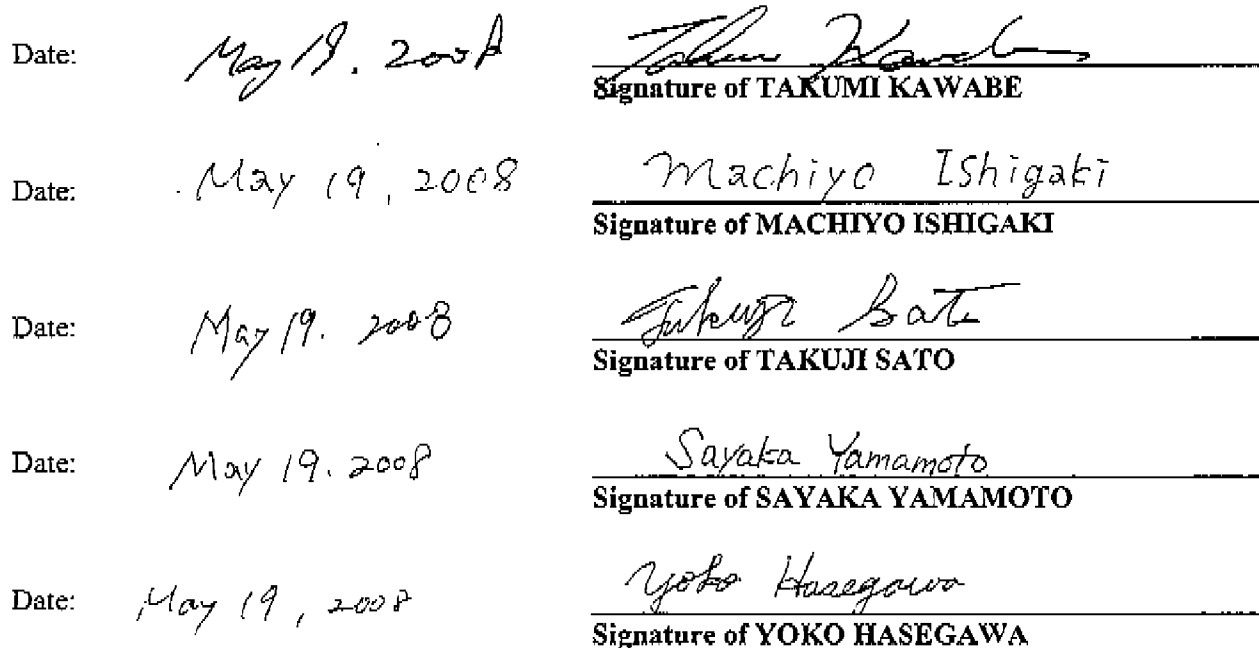 Date: May 19. 2008
Signature of TAKUMI KAWABE
Date: May 19, 2008 Machiyo Ishigaki
Signature of MACHIYO ISHIGAKI
Date: May 19. 2008 Takuji Sato
Signature of TAKUJI SATO
Date: May 19. 2008 Sayaka Yamamoto
Signature of SAYAKA YAMAMOTO
Date: May 19, 2008 Yoko Hasegawa
Signature of YOKO HASEGAWA